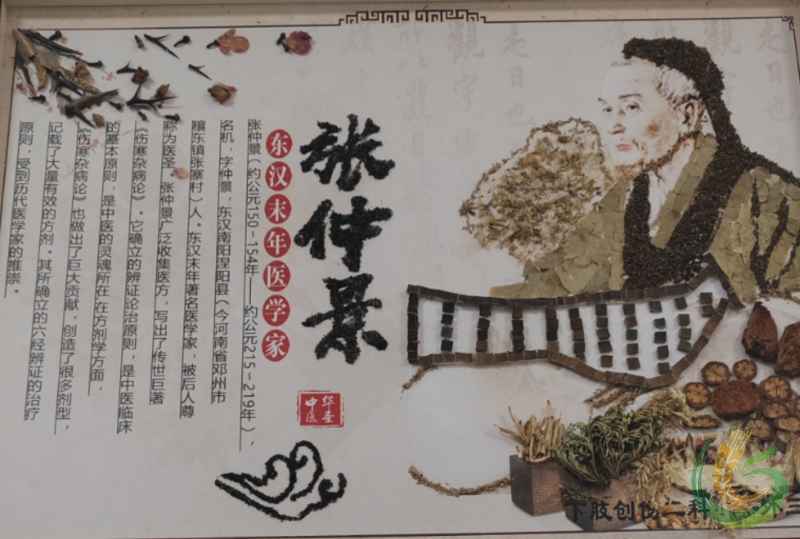 张仲景
东汉末年医学家
张仲景(约公元150~154年——约公元215~219年),
名机,字仲景,东汉南阳涅阳县(今河南省邓州市
穰东镇张寨村)人。东汉末年著名医学家,被后人尊
称为医圣。张仲景广泛收集医方,写出了传世巨著
《伤寒杂病论》。它确立的辨证论治原则,是中医临床
的基本原则,是中医的灵魂所在在方剂学方面,
《伤寒杂病论》也做出了巨大贡献,创造了很多剂型,
记载了大量有效的方剂。其所确立的六经辨证的治疗
原则,受到历代医学家的推崇。
中华
医圣
下肢创伤二科